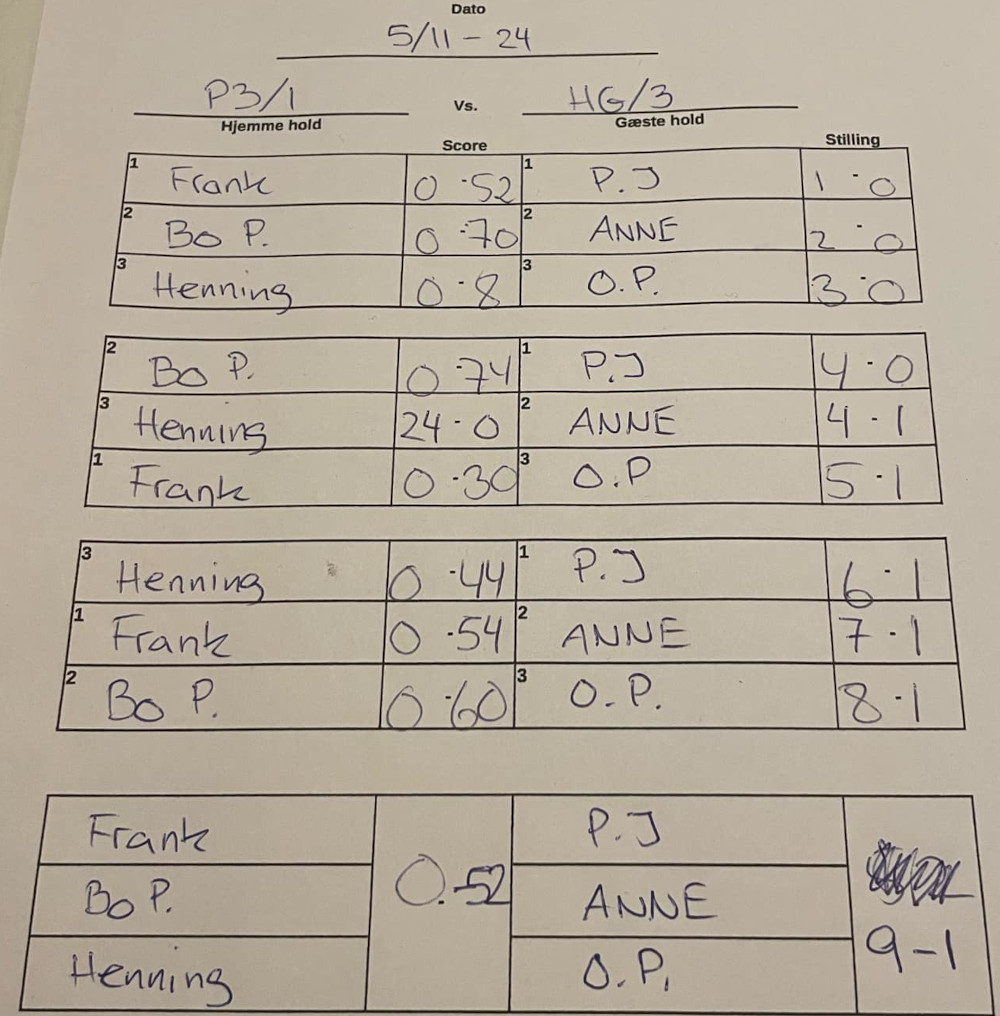 Dato
5/11 - 24
P3/1 Vs. HG/3
Hjemme hold Gæste hold
Score Stilling
1 Frank 0 - 52 1 P.J 1 - 0
2 Bo P. 0 - 70 2 ANNE 2 - 0
3 Henning 0 - 8 3 O.P. 3 - 0
2 Bo P. 0 - 74 1 P.J 4 - 0
3 Henning 24 - 0 2 ANNE 4 - 1
1 Frank 0 - 30 3 O.P 5 - 1
3 Henning 0 - 44 1 P.J 6 - 1
1 Frank 0 - 54 2 ANNE 7 - 1
2 Bo P. 0 - 60 3 O.P. 8 - 1
Frank P.J
Bo P. 0-52 ANNE
Henning O.P. 9-1